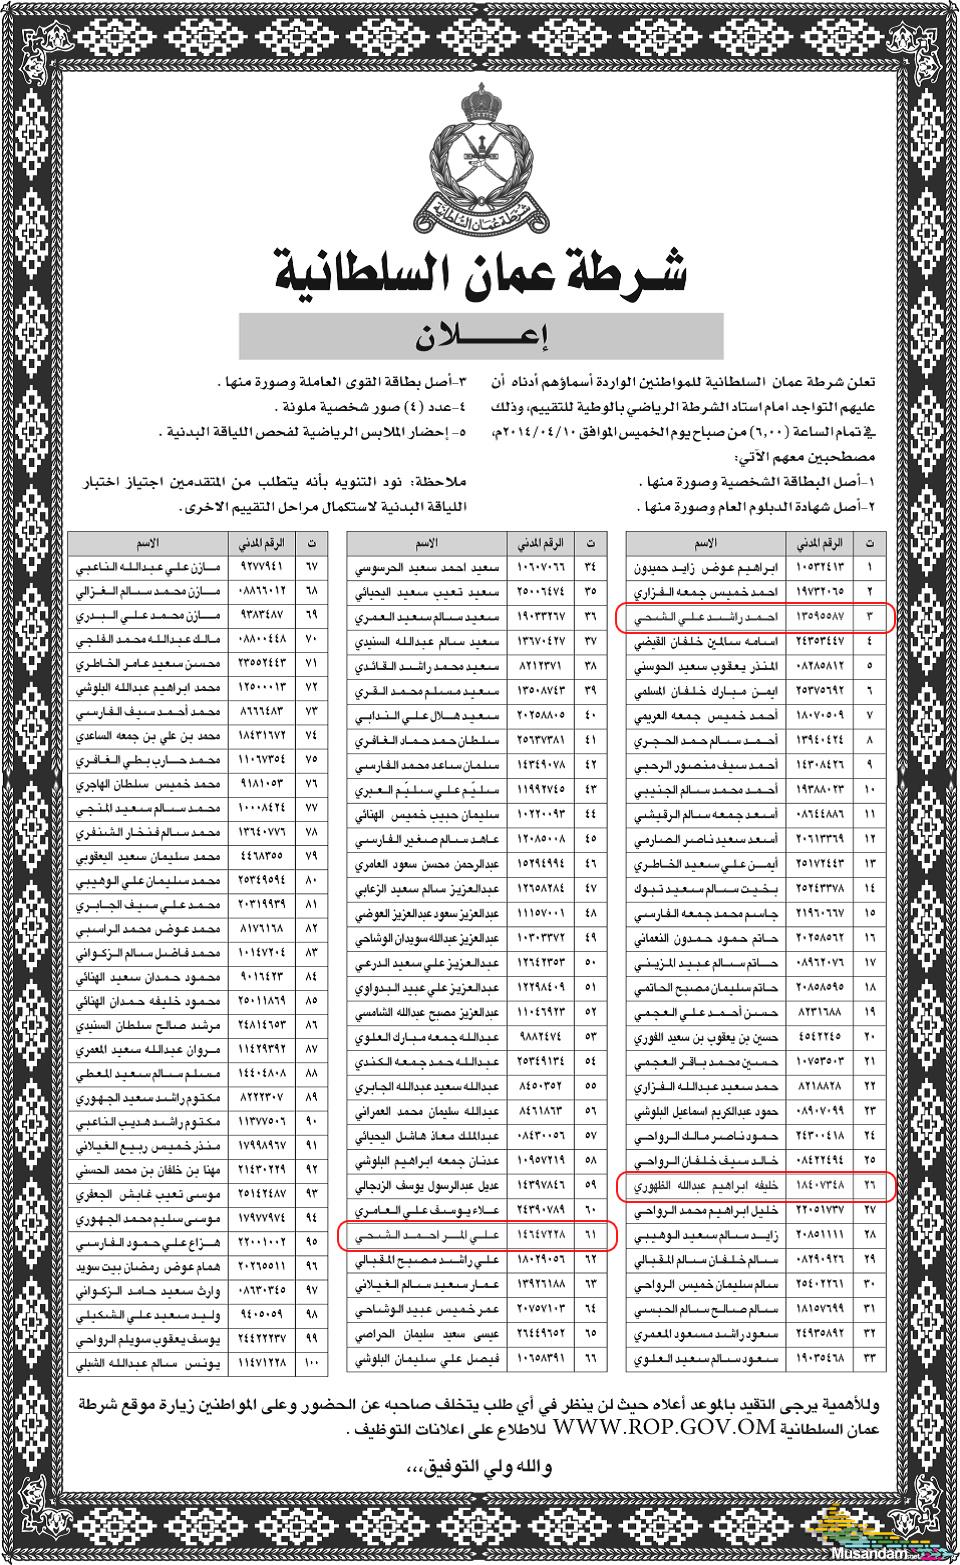 شرطة عمان السلطانية
شرطة عمان السلطانية
إعـــلان
تعلن شرطة عمان السلطانية للمواطنين الواردة أسماؤهم أدناه أن
عليهم التواجد امام استاد الشرطة الرياضي بالوطية للتقييم، وذلك
في تمام الساعة (٦,٠٠) من صباح يوم الخميس الموافق ٢٠١٤/٠٤/١٠م،
مصطحبين معهم الآتي:
١-أصل البطاقة الشخصية وصورة منها .
٢-أصل شهادة الدبلوم العام وصورة منها .
٣-أصل بطاقة القوى العاملة وصورة منها .
٤-عدد (٤) صور شخصية ملونة .
٥- إحضار الملابس الرياضية لفحص اللياقة البدنية .
ملاحظة: نود التنويه بأنه يتطلب من المتقدمين اجتياز اختبار
اللياقة البدنية لاستكمال مراحل التقييم الاخرى.
ت الرقم المدني الاسم
١ ١٠٥٣٢٤١٣ ابراهيم عوض زايد حميدون
٢ ١٩٧٣٢٠٦٥ احمد خميس جمعه الفزاري
٣ ١٣٥٩٥٥٨٧ احمد راشد علي الشحي
٤ ٢٤٣٥٣٤٤٧ اسامه سالمين خلفان القيضي
٥ ٠٨٢٨٥٨١٢ المنذر يعقوب سعيد الحوسني
٦ ٢٥٣٧٥٦٩٢ ايمن مبارك خلفان المسلمي
٧ ١٨٠٧٠٥٠٩ أحمد خميس جمعه العريمي
٨ ١٣٩٤٠٤٢٤ أحمد سالم حمد الحجري
٩ ١٤٣٠٨٤٢٦ أحمد سيف منصور الرحبي
١٠ ١٩٣٨٨٠٢٣ أحمد محمد سالم الجنيبي
١١ ٠٨٦٤٤٨٨٦ أسعد جمعه سالم الرقيشي
١٢ ٢٠٦١٣٣٦٩ أسعد سعيد ناصر الصارمي
١٣ ٢٥١٧٢٤٤٣ أيمن علي سعيد الخاطري
١٤ ٢٥٢٤٣٣٧٨ بخيت سالم سعيد تبوك
١٥ ٢١٩٦٠٦٦٧ جاسم محمد جمعه الفارسي
١٦ ٢٠٢٥٨٥٦٢ حاتم حمود حمدون النعماني
١٧ ٠٨٩٦٢٠٧٦ حاتم سالم عبيد المزيني
١٨ ٢٠٨٥٨٥٩٥ حاتم سليمان مصبح الحاتمي
١٩ ٨٢٣١٦٨٨ حسن أحمد علي العجمي
٢٠ ٤٥٤٢٢٤٥ حسين بن يعقوب بن سعيد الفوري
٢١ ١٠٧٥٣٥٠٣ حسين محمد باقر العجمي
٢٢ ٨٢١٨٨٢٨ حمد سعيد عبدالله الفزاري
٢٣ ٠٨٩٠٧٠٩٩ حمود عبدالكريم اسماعيل البلوشي
٢٤ ٢٤٣٠٠٤١٨ حمود ناصر مالك الرواحي
٢٥ ٠٨٤٢٢٤٩٤ خالد سيف خلفان الرواحي
٢٦ ١٨٤٠٧٣٤٨ خليفه ابراهيم عبدالله الظهوري
٢٧ ٢٢٠٥١٧٣٧ خليل ابراهيم محمد الرواحي
٢٨ ٢٠٨٥١١١١ زايد سالم سعيد الوهيبي
٢٩ ٠٨٢٩٠٩٢٦ سالم خلفان سالم المقبالي
٣٠ ٢٥٤٠٢٢٦١ سالم سليمان خميس الرواحي
٣١ ١٨١٥٧٦٩٩ سالم صالح سالم الحبسي
٣٢ ٢٤٩٣٥٨٩٢ سعود راشد مسعود المعمري
٣٣ ١٩٠٣٥٤٦٨ سعود سالم سعيد العلوي
ت الرقم المدني الاسم
٣٤ ١٠٦٠٧٠٦٦ سعيد احمد سعيد الحرسوسي
٣٥ ٢٥٠٠٦٤٧٤ سعيد تعيب سعيد اليحيائي
٣٦ ١٩٠٣٣٢٦٧ سعيد سالم سعيد العمري
٣٧ ١٣٦٧٠٤٢٧ سعيد سالم عبدالله السنيدي
٣٨ ٨٢١٢٣٧١ سعيد محمد راشد القائدي
٣٩ ١٣٥٠٨٧٤٣ سعيد مسلم محمد القري
٤٠ ٢٠٢٥٨٨٠٥ سعيد هلال علي الندابي
٤١ ٢٥٦٣٧٣٨١ سلطان حمد حماد الغافري
٤٢ ١٤٣٤٩٠٧٨ سلمان ساعد محمد الفارسي
٤٣ ١١٩٩٢٧٤٥ سليّم علي سليّم العبري
٤٤ ١٠٢٢٠٠٩٣ سليمان حبيب خميس الهنائي
٤٥ ١٢٠٨٥٠٠٨ عاهد سالم صغير الفارسي
٤٦ ١٥٢٩٤٩٩٤ عبدالرحمن محسن سعود العامري
٤٧ ١٢٦٥٨٢٨٤ عبدالعزيز سالم سعيد الزعابي
٤٨ ١١١٥٧٠٠١ عبدالعزيز سعود عبدالعزيز العوضي
٤٩ ١٠٣٠٣٣٧٢ عبدالعزيز عبدالله سويدان الوشاحي
٥٠ ١٢٦٤٢٣٥٣ عبدالعزيز علي سعيد الدرعي
٥١ ١٢٢٩٨٤٠٩ عبدالعزيز علي عبيد البدواوي
٥٢ ١١٠٤٦٩٢٣ عبدالعزيز مصبح عبدالله الشامسي
٥٣ ٩٨٨٢٤٧٤ عبدالله جمعه مبارك العلوي
٥٤ ٢٥٣٤٩١٣٤ عبدالله حمد جمعه الكندي
٥٥ ٨٤٥٠٣٥٢ عبدالله سعيد عبدالله الجابري
٥٦ ٨٤٦١٨٦٣ عبدالله سليمان محمد العمراني
٥٧ ٠٨٤٣٠٠٥٦ عبدالملك معاذ هاشل اليحيائي
٥٨ ١٠٩٥٧٢١٩ عدنان جمعه ابراهيم البلوشي
٥٩ ١٤٣٩٧٨٤٦ عديل عبدالرسول يوسف الزدجالي
٦٠ ٢٤٣٩٠٧٨٩ علاء يوسف علي العامري
٦١ ١٤٦٤٧٢٢٨ علي المر احمد الشحي
٦٢ ١٨٠٢٩٠٥٦ علي راشد مصبح المقبالي
٦٣ ١٣٩٢٦١٨٨ عمار سعيد سالم الغيلاني
٦٤ ٢٠٧٥٧١٠٣ عمر خميس عبيد الوشاحي
٦٥ ٢٦٤٤٩٦٥٢ عيسى سعيد سليمان الحراصي
٦٦ ١٠٦٥٨٣٩١ فيصل علي سليمان البلوشي
ت الرقم المدني الاسم
٦٧ ٩٢٧٧٩٤١ مازن علي عبدالله الناعبي
٦٨ ٠٨٨٦٦٠١٢ مازن محمد سالم الغزالي
٦٩ ٩٣٨٣٤٨٧ مازن محمد علي البدري
٧٠ ٠٨٨٠٠٤٤٨ مالك عبدالله محمد الفلجي
٧١ ٢٣٥٥٢٤٤٣ محسن سعيد عامر الخاطري
٧٢ ١٢٥٠٠٠١٣ محمد ابراهيم عبدالله البلوشي
٧٣ ٨٦٦٦٤٨٣ محمد أحمد سيف الفارسي
٧٤ ١٨٤٣١٦٧٢ محمد بن علي بن جمعه الساعدي
٧٥ ١١٠٦٧٣٥٤ محمد حارب بطي الغافري
٧٦ ٩١٨١٠٥٣ محمد خميس سلطان الهاجري
٧٧ ١٠٠٠٨٤٢٤ محمد سالم سعيد المنجي
٧٨ ١٣٦٤٠٧٧٦ محمد سالم فنخار الشنفري
٧٩ ٤٤٦٨٣٥٥ محمد سليمان سعيد اليعقوبي
٨٠ ٢٥٣٤٩٥٩٤ محمد سليمان علي الوهيبي
٨١ ٢٠٣١٩٩٣٩ محمد علي سيف الجابري
٨٢ ٨١٧٦١٦٨ محمد عوض محمد الراسبي
٨٣ ١٠١٤٧٢٠٤ محمد فاضل سالم الزكواني
٨٤ ٩٠١٦٤٢٣ محمود حمدان سعيد الهنائي
٨٥ ٢٥٠١١٨٦٩ محمود خليفه حمدان الهنائي
٨٦ ٢٤٨١٤٦٥٣ مرشد صالح سلطان السنيدي
٨٧ ١١٤٢٩٣٩٢ مروان عبدالله سعيد المعمري
٨٨ ١٤٤٠٤٨٠٨ مسلم سالم سعيد المعطي
٨٩ ٨٢٢٢٣٠٧ مكتوم راشد سعيد الجهوري
٩٠ ١١٣٧٧٥٠٦ مكتوم راشد هديب الناعبي
٩١ ١٧٩٩٨٩٦٧ منذر خميس ربيع الغيلاني
٩٢ ٢١٤٣٠٢٢٩ مهنا بن خلفان بن محمد الحسني
٩٣ ٢٥١٤٢٤٨٧ موسى تعيب غابش الجعفري
٩٤ ١٧٩٧٧٩٧٤ موسى سليم محمد الجهوري
٩٥ ٢٢٠٠١٠٠٢ هزاع علي حمود الفارسي
٩٦ ٢٠٢٦٥٥١١ همام عوض رمضان بيت سويد
٩٧ ٠٨٦٣٠٣٤٥ وارث سعيد حامد الزكواني
٩٨ ٩٤٠٥٠٥٩ وليد سعيد علي الشكيلي
٩٩ ٢٤٤٢٢٢٣٧ يوسف يعقوب سويلم الرواحي
١٠٠ ١١٤٧١٢٢٨ يونس سالم عبدالله الشبلي
وللأهمية يرجى التقيد بالموعد أعلاه حيث لن ينظر في أي طلب يتخلف صاحبه عن الحضور وعلى المواطنين زيارة موقع شرطة
عمان السلطانية WWW.ROP.GOV.OM للاطلاع على اعلانات التوظيف .
والله ولي التوفيق،،،
Musandam.net